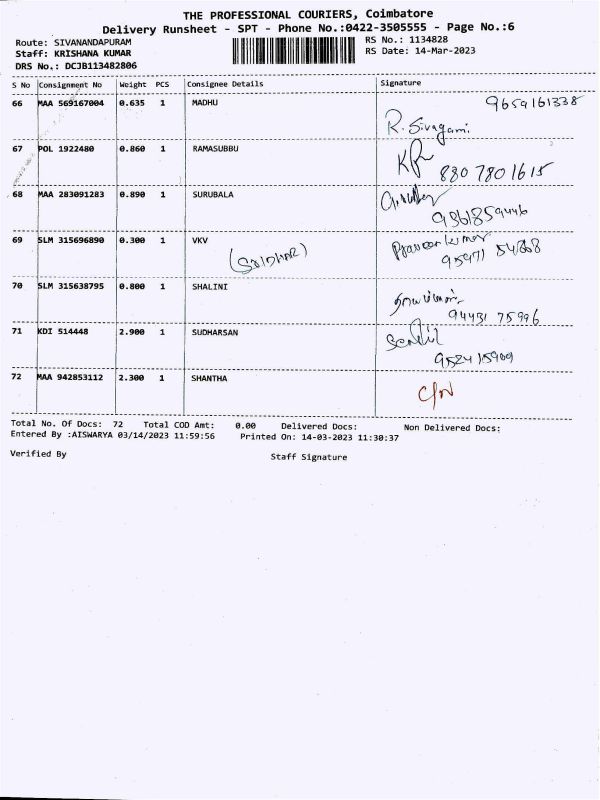 THE PROFESSIONAL COURIERS, Coimbatore
Delivery Runsheet - SPT - Phone No.:0422-3505555 - Page No.:6
Route: SIVANANDAPURAM RS No.: 1134828
Staff: KRISHANA KUMAR RS Date: 14-Mar-2023
DRS No.: DCJB113482806
S No Consignment No Weight PCS Consignee Details Signature
66 MAA 569167004 0.635 1 MADHU 9659161338
R. Sivagami
67 POL 1922480 0.860 1 RAMASUBBU
880 780 1615
68 MAA 283091283 0.890 1 SURUBALA
69 SLM 315696890 0.300 1 VKV Praveen kumar
70 SLM 315638795 0.800 1 SHALINI
94431 75996
71 KDI 514448 2.900 1 SUDHARSAN Senthil
72 MAA 942853112 2.300 1 SHANTHA
Total No. Of Docs: 72 Total COD Amt: 0.00 Delivered Docs: Non Delivered Docs:
Entered By :AISWARYA 03/14/2023 11:59:56 Printed On: 14-03-2023 11:30:37
Verified By Staff Signature